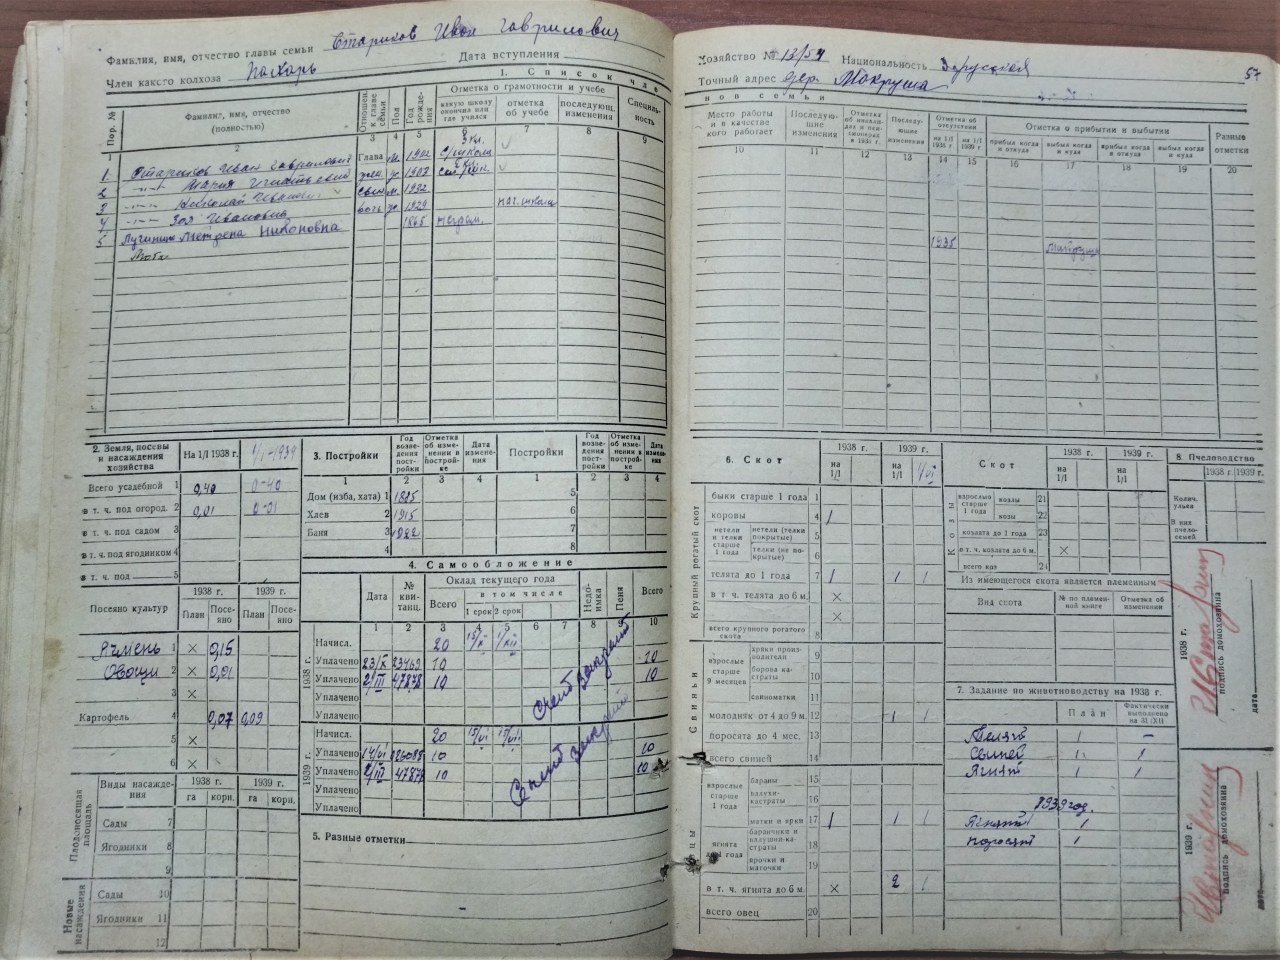 Фамилия, имя, отчество главы семьи Стариков Иван Гаврилович
Член какого колхоза Пахарь Дата вступления
1. Список чле
Пор. №
Фамилия, имя, отчество (полностью)
Отношен. к главе семьи
Пол
Год рождения
Отметка о грамотности и учебе
какую школу окончил или где учился
отметка об учебе
последующ. изменения
Специальность
1 2 3 4 5 6 7 8 9
1 Стариков Иван Гаврилович Глава м. 1902 3 кл. с/школы
2 —"— Мария Игнатьевна жен ж 1907
3 —"— Николай Иванович сын м. 1932
4 —"— Зоя Ивановна дочь ж 1929 нач. школы
5 Лучинина Матрена Никоновна 1865 неграм.
2. Земля, посевы и насаждения хозяйства
На 1/I 1938 г. 1/I-1939
Всего усадебной 1 0,40 0-40
в т. ч. под огород. 2 0,01 0-01
в т. ч. под садом 3
в т. ч. под ягодником 4
в т. ч. под 5
Посеяно культур
1938 г. 1939 г.
План Посеяно План Посеяно
Ячмень 1 × 0,15
Овощи 2 × 0,01
3 ×
Картофель 4 0,07 0,09
5 ×
6 ×
Плодоносящая площадь
Виды насаждения
1938 г. 1939 г.
га корн. га корн.
Сады 7
Ягодники 8
9
Новые насаждения
Сады 10
Ягодники 11
12
3. Постройки
Год возведения постройки
Отметка об изменении в постройке
Дата изменения
Постройки
Год возведения постройки
Отметка об изменении в постройке
Дата изменения
1 2 3 4 1 2 3 4
Дом (изба, хата) 1 1895 5
Хлев 2 1915 6
Баня 3 1922 7
4 8
4. Самообложение
Дата
№ квитанц.
Оклад текущего года
Всего
в том числе
1 срок 2 срок
Недоимка
Пеня
Всего
1 2 3 4 5 6 7 8 9 10
1938 г.
Начисл. 20 15/X 1/XII
Уплачено 23/X 23469 10 10
Уплачено 2/III 47878 10 10
Уплачено
Уплачено
Счет закрыт
1939 г.
Начисл. 20
Уплачено 10 10
Уплачено 2/III 47878 10 10
Уплачено
Уплачено
Счет закрыт
5. Разные отметки
Хозяйство № 13/54 Национальность
57
Точный адрес дер. Мокруша
нов семьи
Место работы и в качестве кого работает
Последующие изменения
Отметка об инвалидах и пенсионерах в 1938 г.
Последующие изменения
Отметка об отсутствии
на 1/I 1938 г. на 1/I 1939 г.
Отметка о прибытии и выбытии
прибыл когда и откуда
выбыл когда и куда
прибыл когда и откуда
выбыл когда и куда
Разные отметки
10 11 12 13 14 15 16 17 18 19 20
6. Скот
1938 г. 1939 г.
на 1/I на 1/I 1/VI
Крупный рогатый скот
быки старше 1 года 1
коровы 4 1
нетели и телки старше 1 года
нетели (телки покрытые) 5
телки (не покрытые) 6
телята до 1 года 7 1 1 1
в т. ч. телята до 6 м. ×
×
всего крупного рогатого скота 8
Свиньи
взрослые старше 9 месяцев
хряки производители 9
борова кастраты 10
свиноматки 11
молодняк от 4 до 9 м. 12 1 1
поросята до 4 мес. 13
всего свиней 14
взрослые старше 1 года
бараны 15
валухи-кастраты 16
матки и ярки 17 1 1 1
ягнята до 1 года
баранчики и валушки-кастраты 18
ярочки и маточки 19
в т. ч. ягнята до 6 м. × 2 1
всего овец 20
Скот
1938 г. 1939 г.
на 1/I на 1/I
Козы
взрослые старше 1 года
козлы 21
козы 22
козлята до 1 года 23
в т. ч. козлята до 6 м. ×
всего коз 24
Из имеющегося скота является племенным
Вид скота
№ по племенной книге
Отметка об изменении
7. Задание по животноводству на 1938 г.
План
Фактически выполнено на 31/XII
Телят 1 —
Свиней 1 1
Ягнят 1 1
1939 год.
Ягнят 1
поросят 1
8. Пчеловодство
1938 г. 1939 г.
Колич. ульев
В них пчелосемей
1938 г.
подпись домохозяина
дата
1939 г.
подпись домохозяина
дата